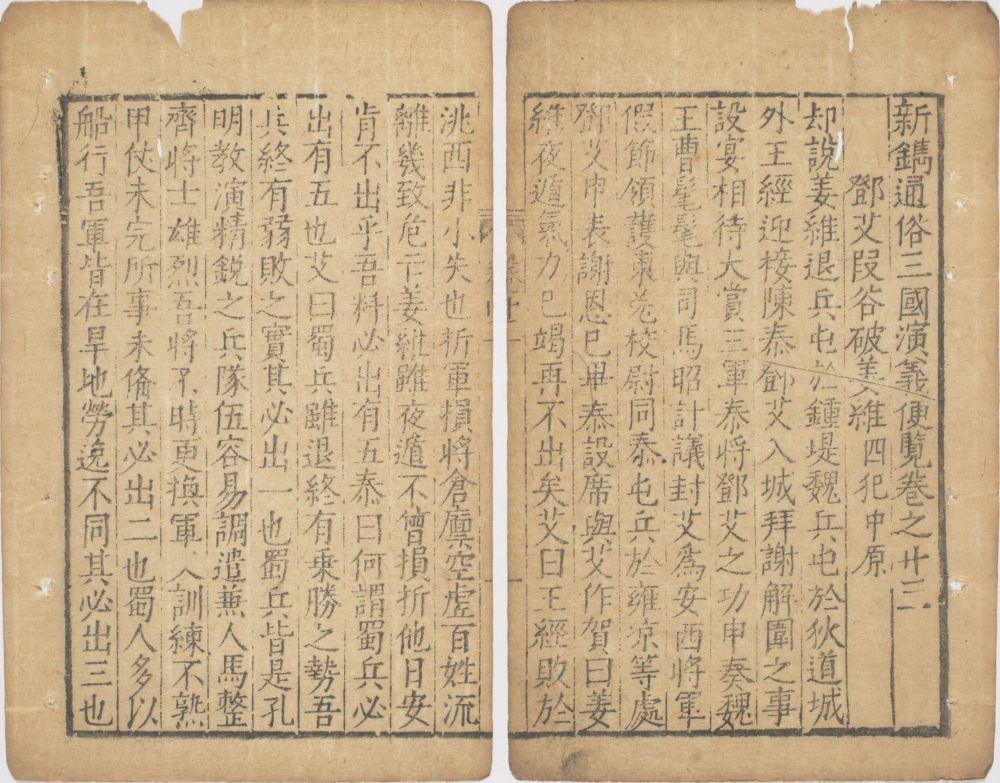 新鐫通俗三國演義便覽卷之廿三
鄧艾叚谷破姜維 四犯中原
却說姜維退兵屯於鍾堤魏兵屯於狄道城
外王經迎接陳泰鄧艾入城拜謝解圍之事
設宴相待大賞三軍泰將鄧艾之功申奏魏
王曹髦髦與司馬昭計議封艾為安西將軍
假節領護東羌校尉同泰屯兵於雍凉等處
鄧艾申表謝恩已畢泰設席與艾作賀曰姜
維夜遁氣力已竭再不出矣艾曰王經敗於
洮西非小失也折軍損將倉廪空虛百姓流
離幾致危亡姜維雖夜遁不曾損折他日安
肯不出乎吾料必出有五泰曰何謂蜀兵必
出有五也艾曰蜀兵雖退終有乗勝之勢吾
兵終有弱敗之實其必出一也蜀兵皆是孔
明教演精銳之兵隊伍容易調遣兼人馬整
齊將士雄烈吾將不時更換軍人訓練不熟
甲仗未完所事未偹其必出二也蜀人多以
船行吾軍皆在旱地勞逸不同其必出三也